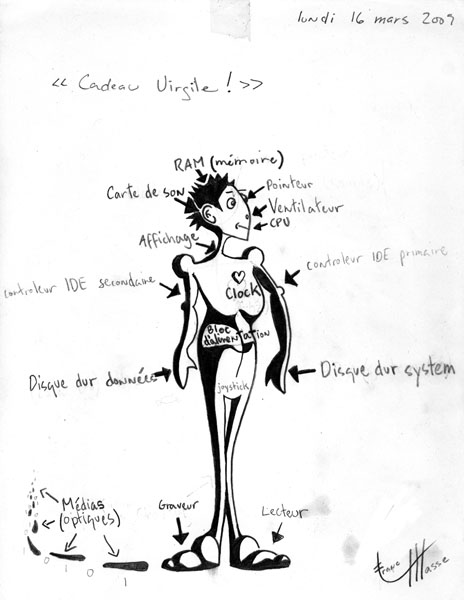 lundi 16 mars 2009
<< Cadeau Virgile ! >>
RAM (mémoire)
Carte de son
Pointeur
Ventilateur
CPU
Affichage
controleur IDE secondaire
controleur IDE primaire
Clock
Bloc
d'alimentation
Disque dur données
Disque dur system
joystick
Médias
(optiques)
Graveur
Lecteur
1
0
1